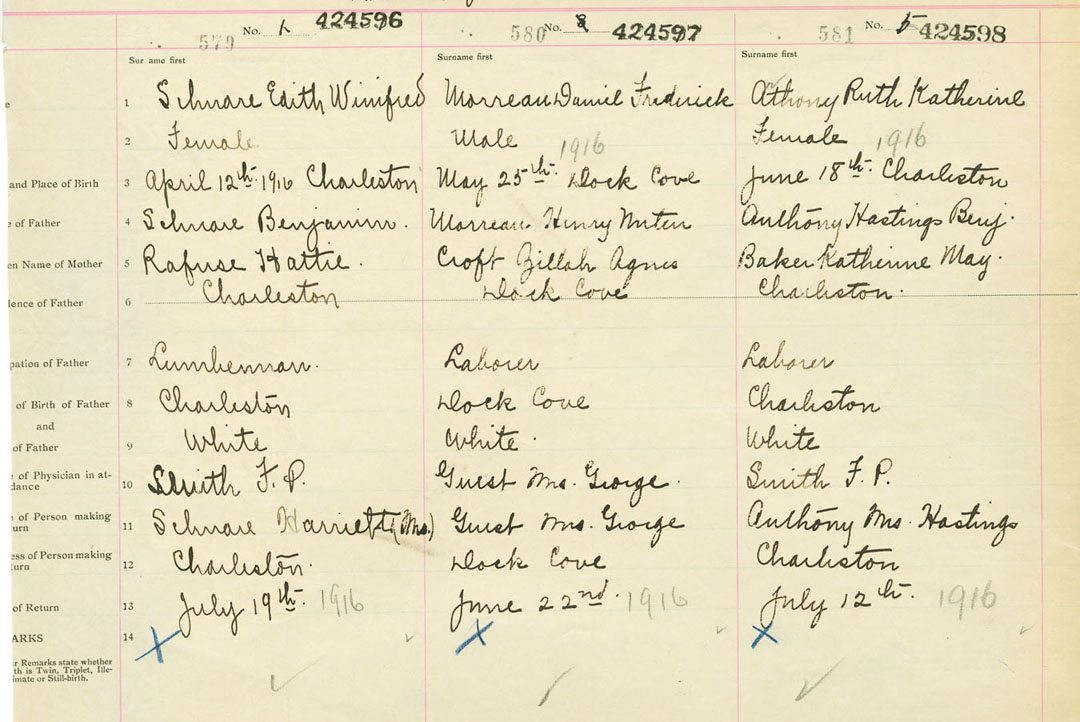 579 No. 1 424596
580 No. 3 424597
581 No. 5 424598
Surname first Surname first Surname first
1 Schnare Edith Winifred Morreau Daniel Frederick Athony Ruth Katherine
2 Female Male 1916 Female 1916
and Place of Birth 3 April 12th 1916 Charleston May 25th. Dock Cove June 18th. Charleston
e of Father 4 Schnare Benjamin. Morreau Henry Anthony Hastings Benj.
en Name of Mother 5 Rafuse Hattie. Croft Zillah Agnes Baker Katherine May.
ence of Father 6 Charleston Dock Cove Charleston.
pation of Father 7 Lumberman. Laborer Laborer
of Birth of Father 8 Charleston Dock Cove Charleston
and
of Father 9 White White. White
e of Physician in at-
dance 10 Smith F. P. Guest Mrs. George. Smith F. P.
e of Person making
urn 11 Schnare Harriett (Mrs.) Guest Mrs. George Anthony Mrs. Hastings
ess of Person making
turn 12 Charleston. Dock Cove Charleston
of Return 13 July 19th. 1916 June 22nd. 1916 July 12th. 1916
ARKS 14 X X X
r Remarks state whether
th is Twin, Triplet, Ille-
imate or Still-birth.